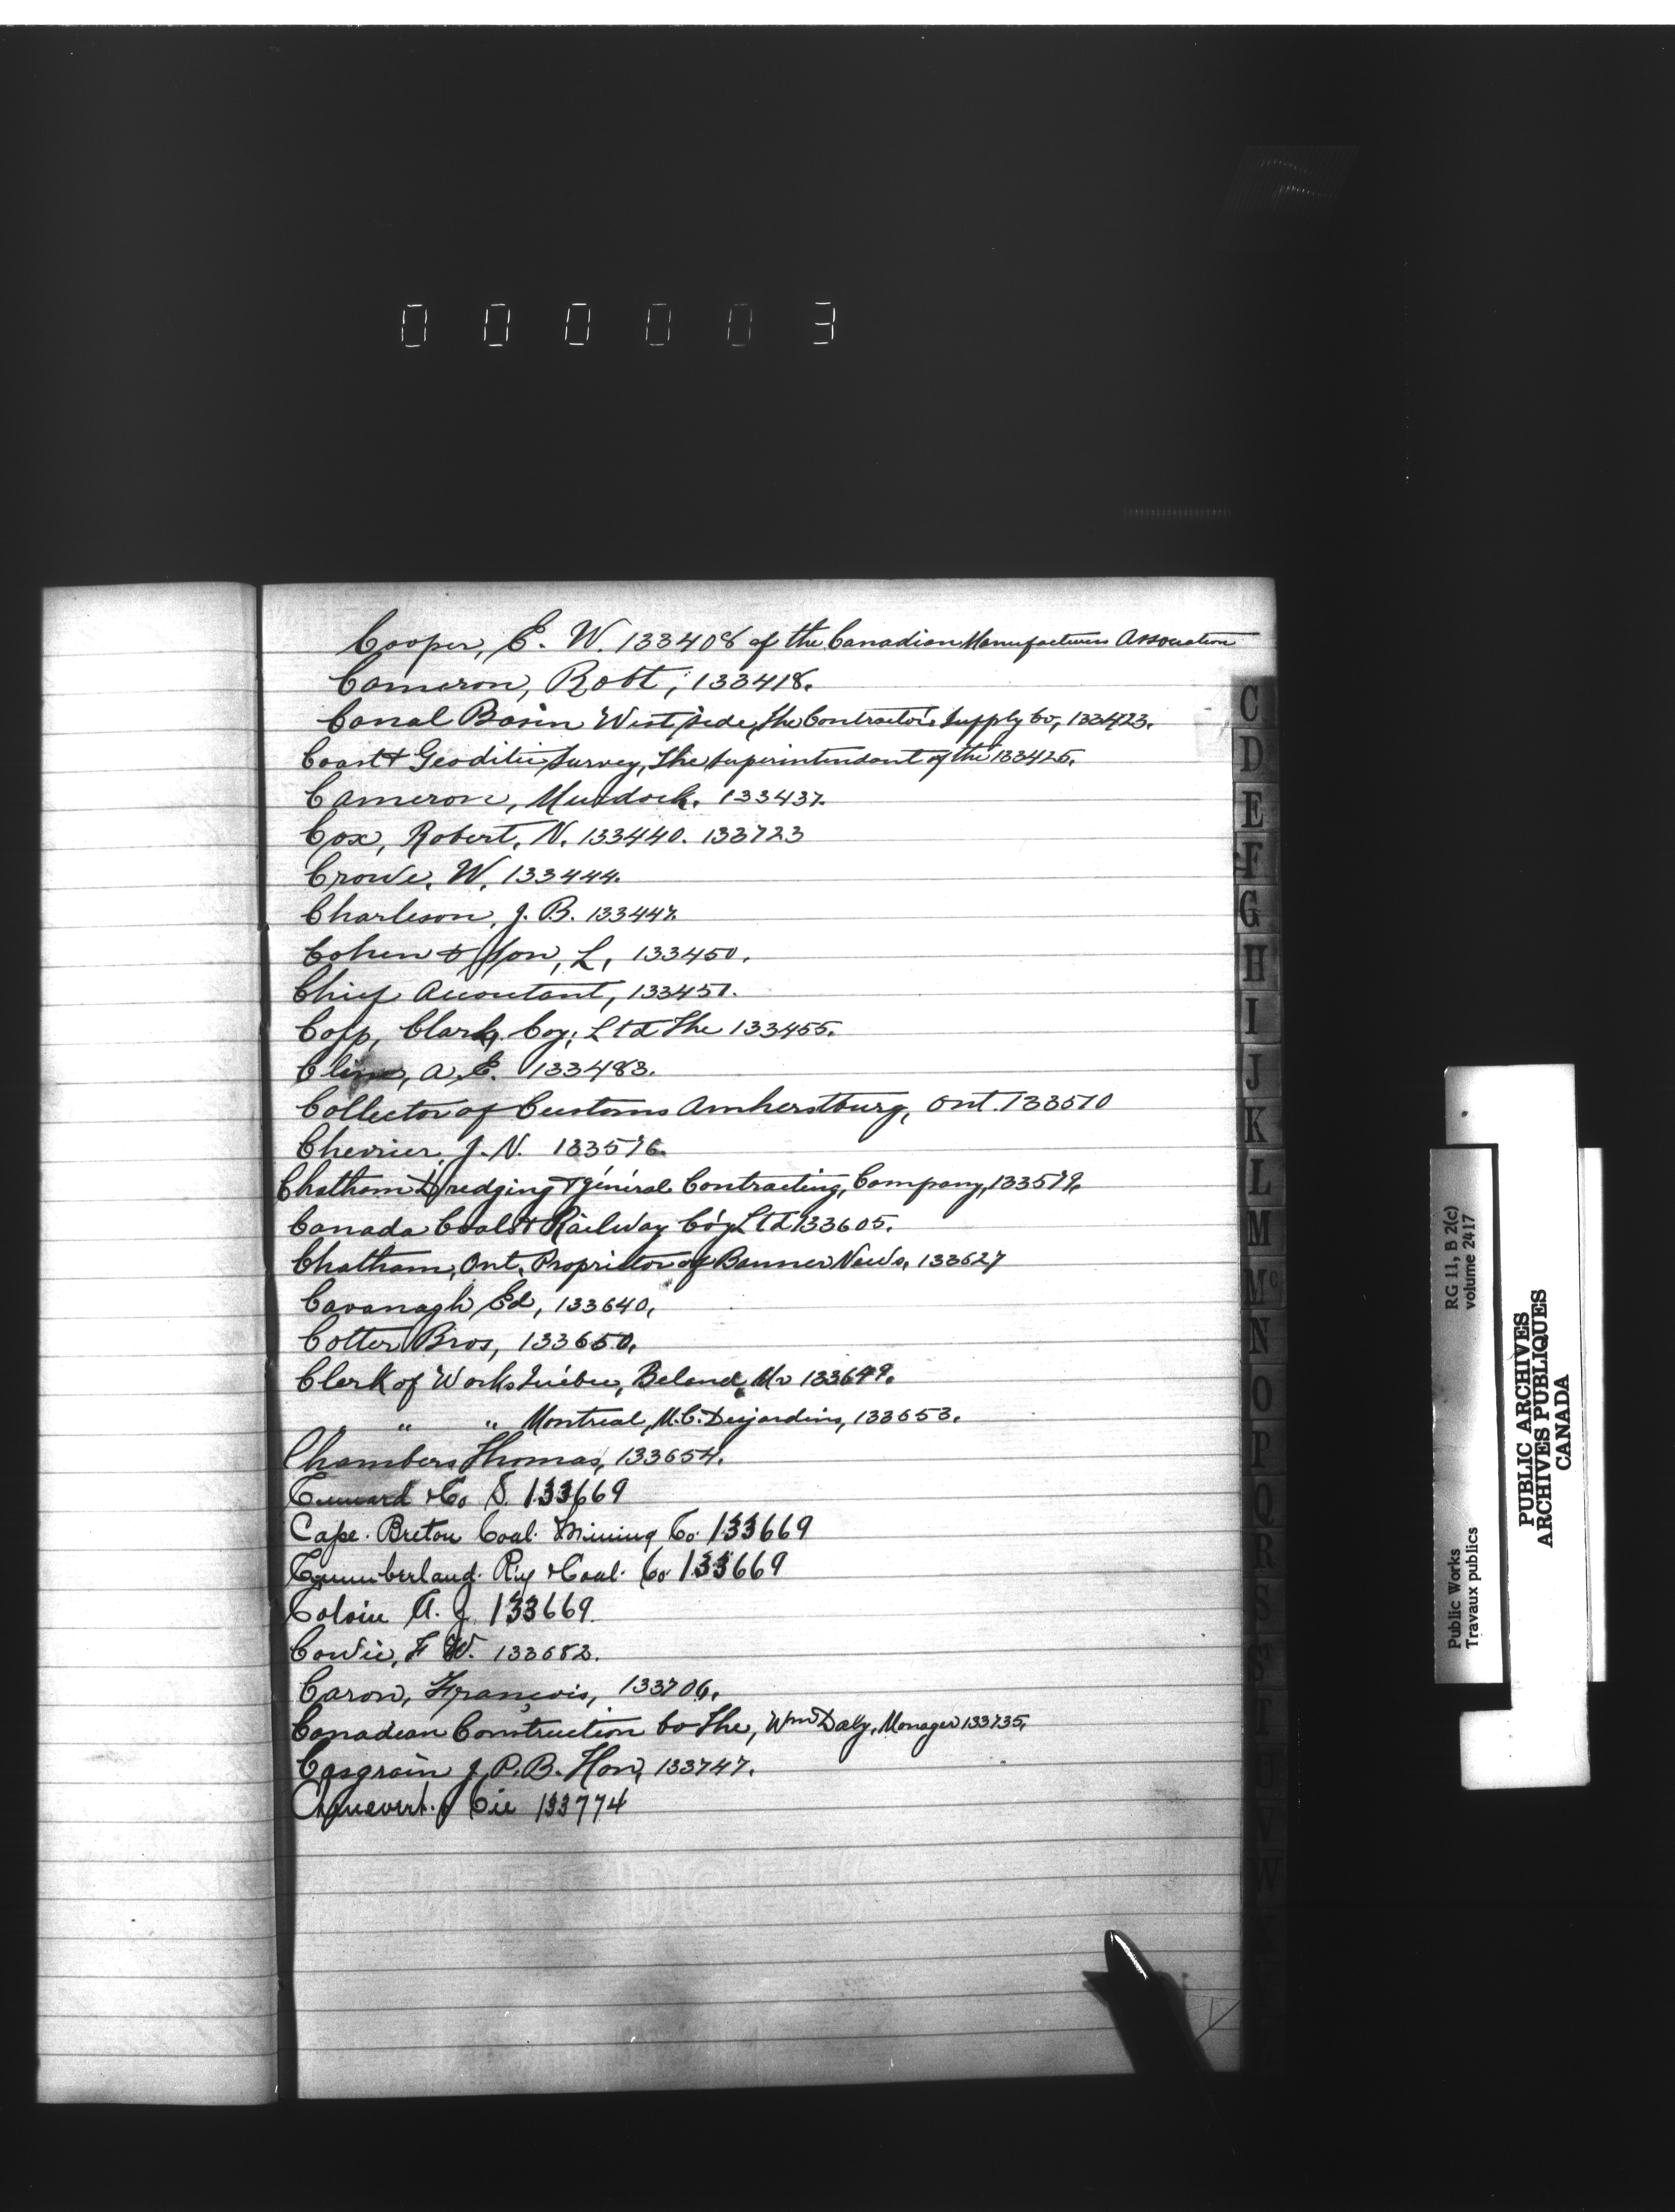 000003
Cooper, E. W. 133408 of the Canadian Manufacturers Association
Cameron, Robt, 133418.
Canal Basin West side, The Contractors Supply Co, 133423.
Coast & Geoditic Survey, The Superintendant of the 133426.
Cameron, Murdock. 133437.
Cox, Robert, N. 133440. 133723
Crowe, W. 133444.
Charleson, J. B. 133447.
Cohen & Son, L, 133450.
Chief Acountant, 133451.
Copp, Clark, Coy, Ltd The 133455.
Cline, A. E. 133483.
Collector of Customs Amherstburg, Ont. 133510
Chevrier, J. N. 133576.
Chatham Dredging & General Contracting, Company, 133579.
Canada Coals & Railway Co'y Ltd 133605.
Chatham, Ont, Proprietor of Banner News, 133627
Cavanagh Ed, 133640,
Cotter Bros, 133650.
Clerk of Works Quebec, Beland, Mr 133649.
" " Montreal, M.C. Desjardins, 133653.
Chambers Thomas, 133654.
Cunard & Co S. 133669
Cape Breton Coal Mining Co 133669
Cumberland Ry & Coal Co 133669
Colvin A. J. 133669.
Cowie, F W. 133682.
Caron, François, 133706.
Canadian Construction Co The, Wm Daly, Manager 133735,
Casgrain J. P. B. Hon, 133747.
Cie 133774
C
D
E
F
G
H
I
J
K
L
M
Mc
N
O
P
Q
R
S
T
U
V
W
Public Works
Travaux publics
RG 11, B 2(c)
volume 2417
PUBLIC ARCHIVES
ARCHIVES PUBLIQUES
CANADA